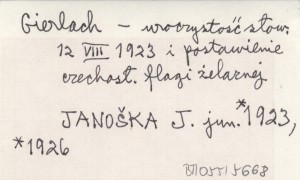 Gierlach - uroczystość stow.
12 VIII 1923 i postawienie
czechosł. flagi żelaznej
JANOŠKA J. jun. *1923,
*1926